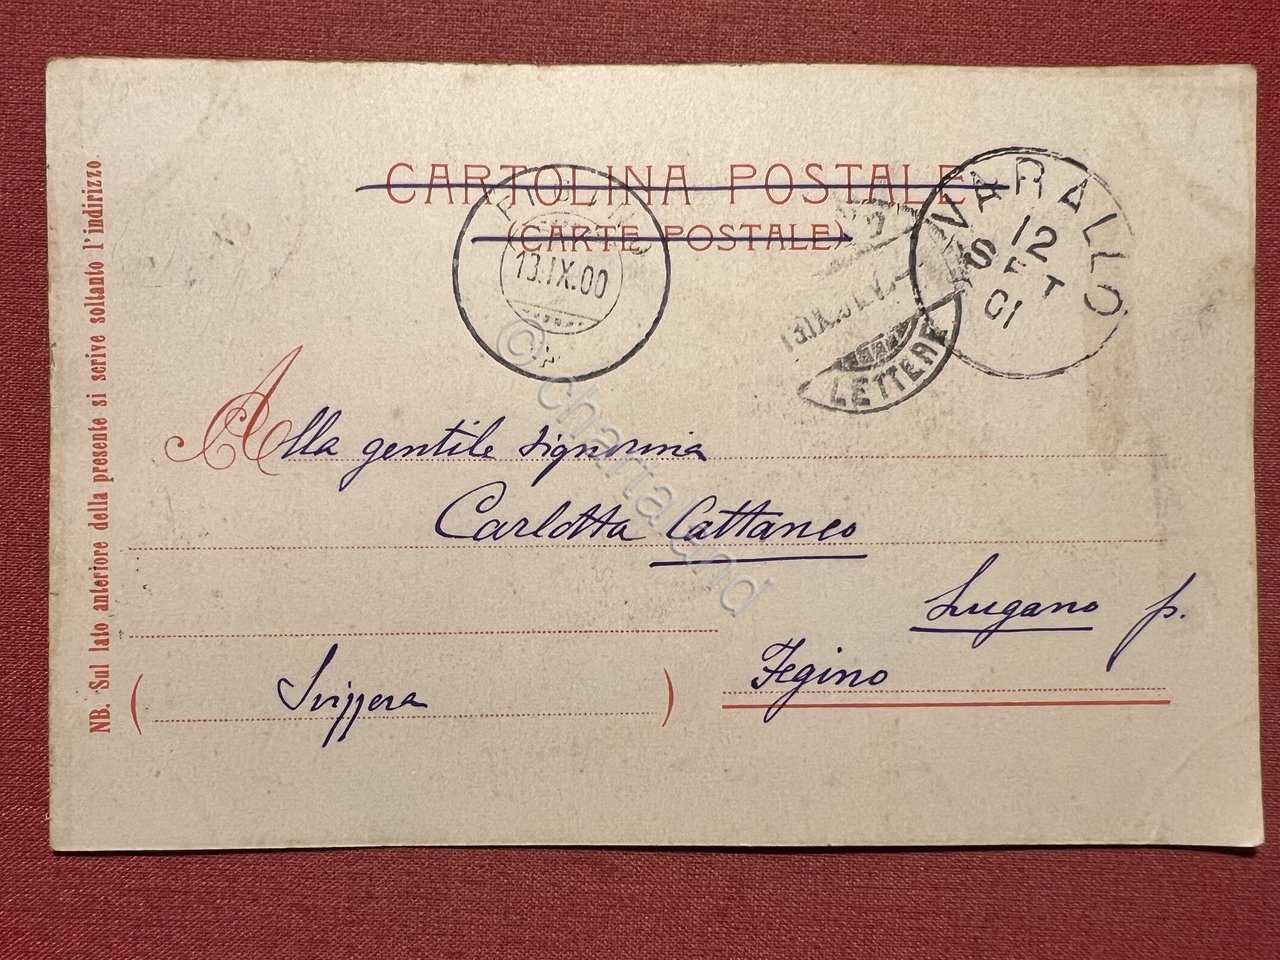 CARTOLINA POSTALE
(CARTE POSTALE)
NB. Sul lato anteriore della presente si scrive soltanto l'indirizzo
13.IX.00
LETTERE
VARALLO
12
SET
01
Alla gentile Signorina
Carlotta Cattaneo
Lugano p.
Fegino
(Svizzera)
© chartaland